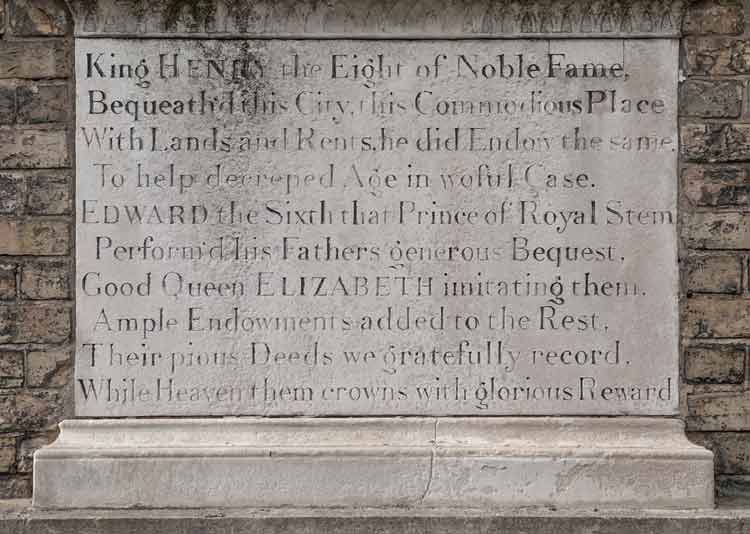 King HENRY the Eight of Noble Fame,
Bequeath'd this City, this Commodious Place
With Lands and Rents, he did Endow the same,
To help decreped Age in woful Case.
EDWARD the Sixth that Prince of Royal Stem
Perform'd his Fathers generous Bequest.
Good Queen ELIZABETH imitating them,
Ample Endowments added to the Rest,
Their pious Deeds we gratefully record,
While Heaven them crowns with glorious Reward